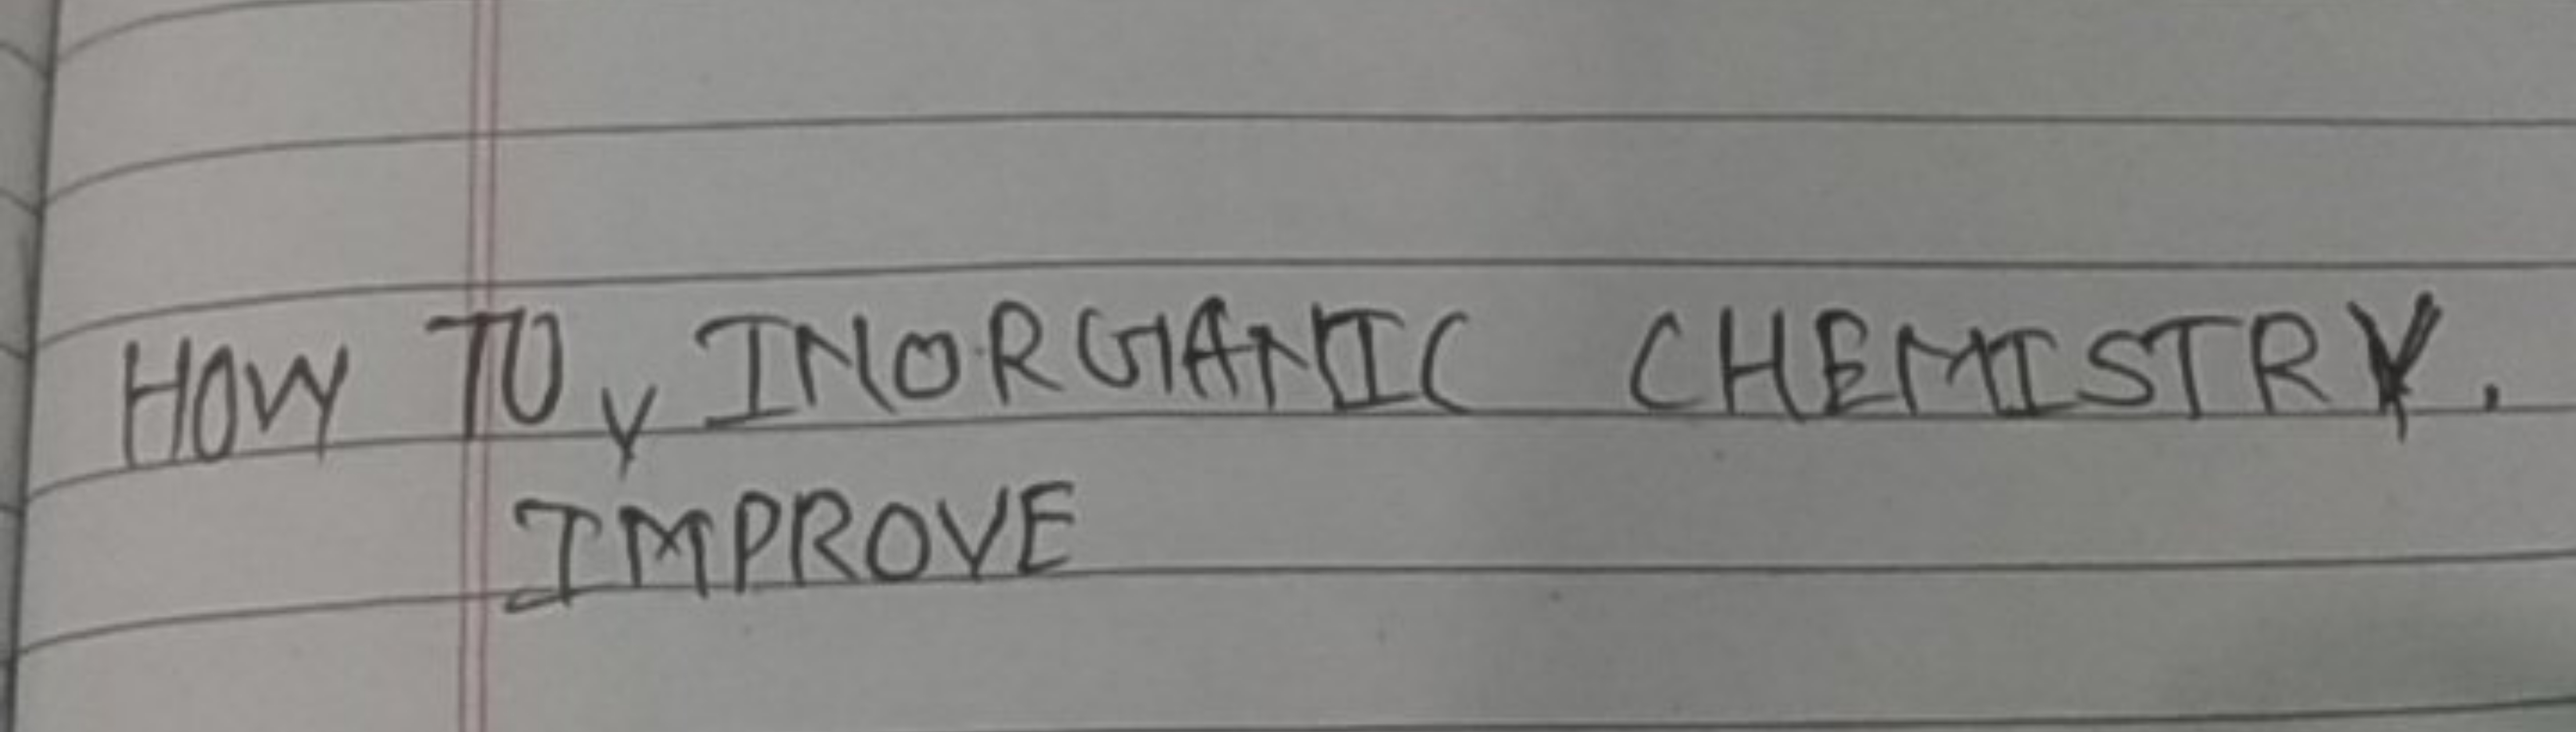 HOW TO ˬ INORGANIC CHEMISTRY.
IMPROVE